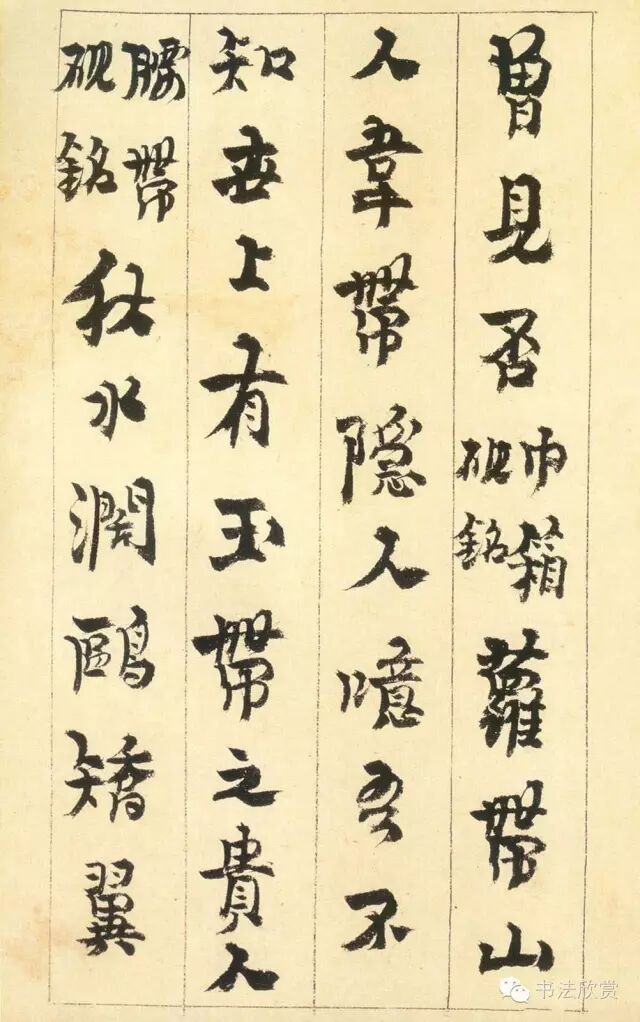 曾見否巾箱硯銘蘿帶山
人韋帶隱人噫吾不
知世上有玉帶之貴人
腰帶硯銘秋水闊鷗矯翼
书法欣赏